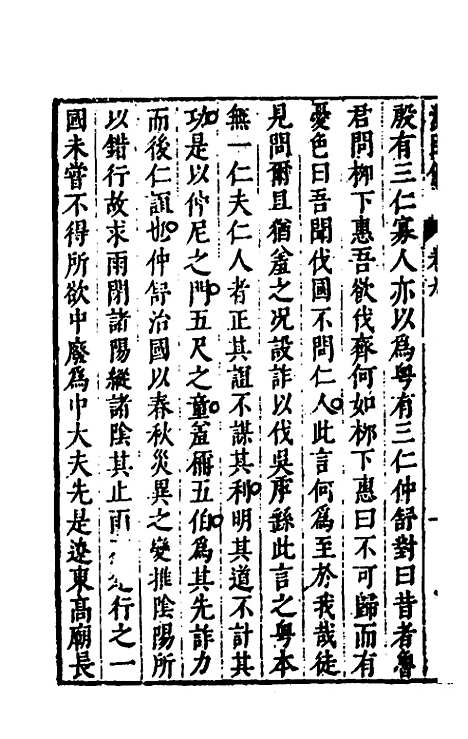 殷有三仁寡人亦以為粤有三仁仲舒對曰昔者魯
君問柳下惠吾欲伐齊何如柳下惠曰不可歸而有
憂色曰吾聞伐國不問仁人此言何為至於我哉徒
見問爾且猶羞之况設詐以伐吳乎繇此言之粤本
無一仁夫仁人者正其誼不謀其利明其道不計其
功是以仲尼之門五尺之童羞稱五伯為其先詐力
而後仁誼也仲舒治國以春秋災異之變推陰陽所
以錯行故求雨閉諸陽縱諸陰其止雨行之一
國未嘗不得所欲中廢為中大夫先是遼東高廟長